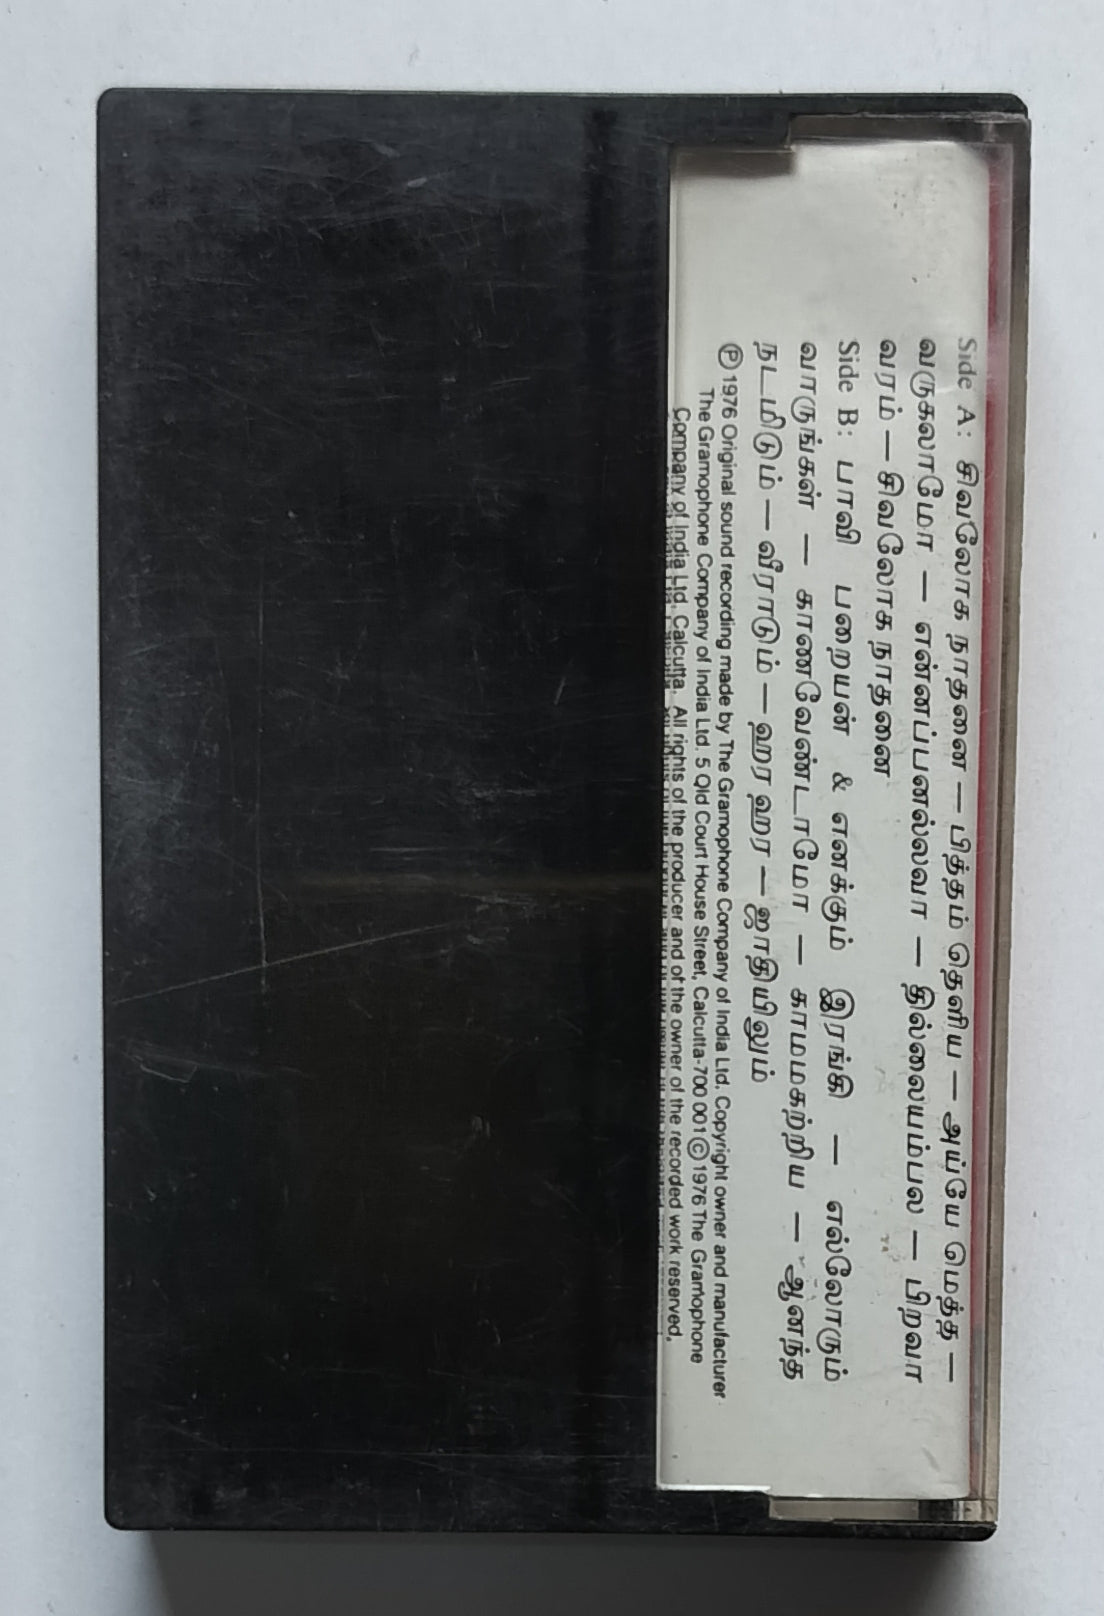 Side A: சிவலோக நாதனை — பித்தம் தெளிய — அய்யே மெத்த —
வருகலாமோ — என்னப்பனல்லவா — தில்லையம்பல — பிறவா
வரம் — சிவலோக நாதனை
Side B: பாவி பறையன் & எனக்கும் இரங்கி — எல்லோரும்
வாருங்கள் — காணவேண்டாமோ — காமமகற்றிய — ஆனந்த
நடமிடும் — வீராடும் — ஹர ஹர — ஜாதியிலும்
Ⓟ 1976 Original sound recording made by The Gramophone Company of India Ltd. Copyright owner and manufacturer
The Gramophone Company of India Ltd. 5 Old Court House Street, Calcutta-700 001 © 1976 The Gramophone
Company of India Ltd. Calcutta. All rights of the producer and of the owner of the recorded work reserved.